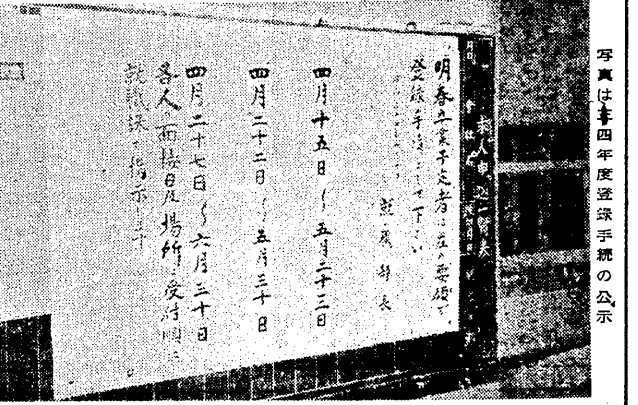 写真は四年度登録手続の公示
明春卒業予定者は左の要領で
登録手続をして下さい
就職部長
四月十五日〜五月二十三日
四月二十二日〜五月三十日
四月二十七日〜六月三十日
各人の面接日及場所は受付順に
就職課で指示します